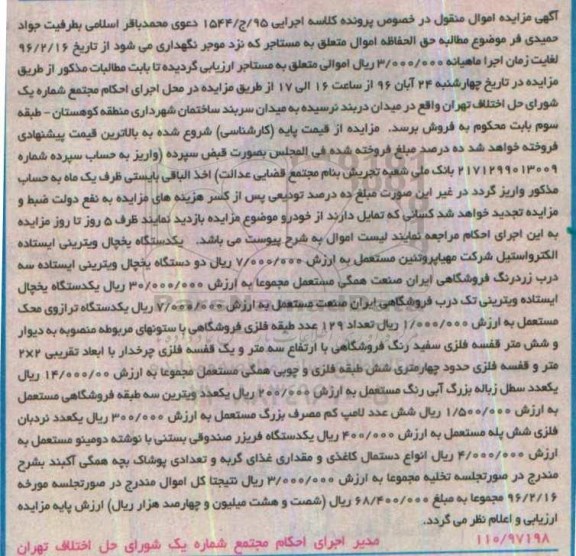 آگهی مزایده اموال منقول در خصوص پرونده کلاسه اجرایی ۱۵۴۴/ج/۹۵ دعوی محمدباقر اسلامی بطرفیت جواد
حمیدی فر موضوع مطالبه حق الحفاظه اموال متعلق به مستاجر که نزد موجر نگهداری می شود از تاریخ ۹۶/۲/۱۶
لغایت زمان اجرا ماهیانه ۳/۰۰۰/۰۰۰ ریال اموالی متعلق به مستاجر ارزیابی گردیده تا بابت مطالبات مذکور از طریق
مزایده در تاریخ چهارشنبه ۲۴ آبان ۹۶ از ساعت ۱۶ الی ۱۷ از طریق مزایده در محل اجرای احکام مجتمع شماره یک
شورای حل اختلاف تهران واقع در میدان دربند نرسیده به میدان سربند ساختمان شهرداری منطقه کوهستان - طبقه
سوم بابت محکوم به فروش برسد. مزایده از قیمت پایه (کارشناسی) شروع شده به بالاترین قیمت پیشنهادی
فروخته خواهد شد ده درصد مبلغ فروخته شده فی المجلس بصورت قبض سپرده (واریز به حساب سپرده شماره
۲۱۷۱۲۹۹۰۱۳۰۰۹ بانک ملی شعبه تجریش بنام مجتمع قضایی عدالت) اخذ الباقی بایستی ظرف یک ماه به حساب
مذکور واریز گردد در غیر این صورت مبلغ ده درصد تودیعی پس از کسر هزینه های مزایده به نفع دولت ضبط و
مزایده تجدید خواهد شد کسانی که تمایل دارند از خودرو موضوع مزایده بازدید نمایند ظرف ۵ روز تا روز مزایده
به این اجرای احکام مراجعه نمایند لیست اموال به شرح پیوست می باشد. یکدستگاه یخچال ویترینی ایستاده
الکترواستیل شرکت مهیاپروتئین مستعمل به ارزش ۷/۰۰۰/۰۰۰ ریال دو دستگاه یخچال ویترینی ایستاده سه
درب زردرنگ فروشگاهی ایران صنعت همگی مستعمل مجموعا به ارزش ۳۰/۰۰۰/۰۰۰ ریال یکدستگاه یخچال
ایستاده ویترینی تک درب فروشگاهی ایران صنعت مستعمل به ارزش ۷/۰۰۰/۰۰۰ ریال یکدستگاه ترازوی محک
مستعمل به ارزش ۱/۰۰۰/۰۰۰ ریال تعداد ۱۲۹ عدد طبقه فلزی فروشگاهی با ستونهای مربوطه منصوبه به دیوار
و شش متر قفسه فلزی سفید رنگ فروشگاهی با ارتفاع سه متر و یک قفسه فلزی چرخدار با ابعاد تقریبی ۲X۲
متر و قفسه فلزی حدود چهارمتری شش طبقه فلزی و چوبی همگی مستعمل مجموعا به ارزش ۱۴/۰۰۰/۰۰ ریال
یکعدد سطل زباله بزرگ آبی رنگ مستعمل به ارزش ۲۰۰/۰۰۰ ریال یکعدد ویترین سه طبقه فروشگاهی مستعمل
به ارزش ۱/۵۰۰/۰۰۰ ریال شش عدد لامپ کم مصرف بزرگ مستعمل به ارزش ۳۰۰/۰۰۰ ریال یکعدد نردبان
فلزی شش پله مستعمل به ارزش ۴۰۰/۰۰۰ ریال یکدستگاه فریزر صندوقی بستنی با نوشته دومینو مستعمل به
ارزش ۴/۰۰۰/۰۰۰ ریال انواع دستمال کاغذی و مقداری غذای گربه و تعدادی پوشاک بچه همگی آکبند بشرح
مندرج در صورتجلسه تخلیه مجموعا به ارزش ۳/۰۰۰/۰۰۰ ریال نتیجتا کل اموال مندرج در صورتجلسه مورخه
۹۶/۲/۱۶ مجموعا به مبلغ ۶۸/۴۰۰/۰۰۰ ریال (شصت و هشت میلیون و چهارصد هزار ریال) ارزش پایه مزایده
ارزیابی و اعلام نظر می گردد.
۱۱۰/۹۷۱۹۸ مدیر اجرای احکام مجتمع شماره یک شورای حل اختلاف تهران